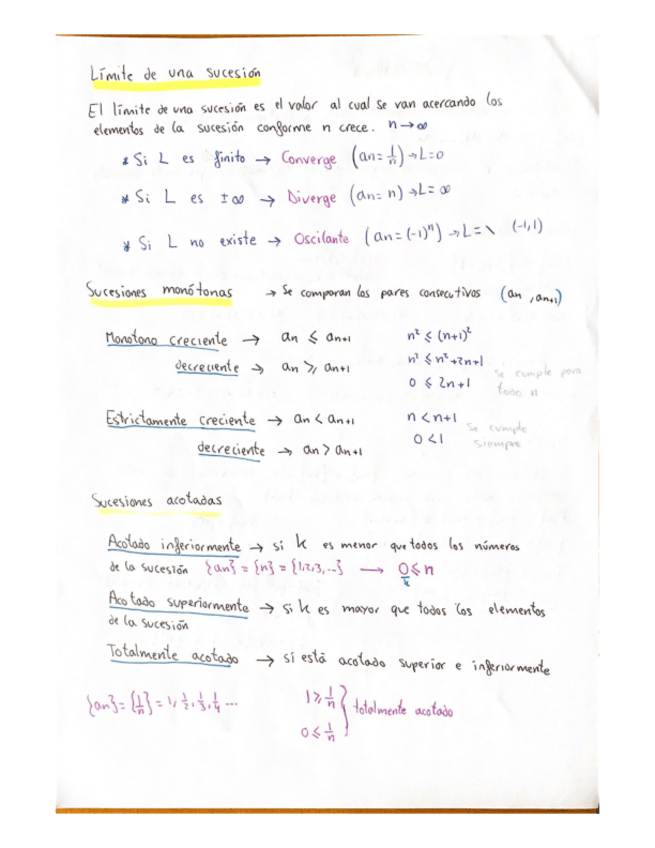 Límite de una sucesión
El límite de una sucesión es el valor al cual se van acercando los
elementos de la sucesión conforme n crece. n→∞
* Si L es finito → Converge (an = 1/n) → L=0
* Si L es ±∞ → Diverge (an = n) → L= ∞
* Si L no existe → Oscilante (an = (-1)ⁿ) → L = \ (-1,1)
Sucesiones monótonas → Se comparan los pares consecutivos (an, an+1)
Monótono creciente → an ≤ an+1 n² ≤ (n+1)²
decreciente → an ≥ an+1 n² ≤ n²+2n+1
0 ≤ 2n+1 se cumple para todo n
Estrictamente creciente → an < an+1 n < n+1
decreciente → an > an+1 0 < 1 se cumple siempre
Sucesiones acotadas
Acotado inferiormente → si k es menor que todos los números
de la sucesión {an} = {n} = {1,2,3,...} → 0 ≤ n
k
Acotado superiormente → si k es mayor que todos los elementos
de la sucesión
Totalmente acotado → si está acotado superior e inferiormente
{an} = {1/n} = 1, 1/2, 1/3, 1/4 ... 1 ≥ 1/n
0 ≤ 1/n } totalmente acotado